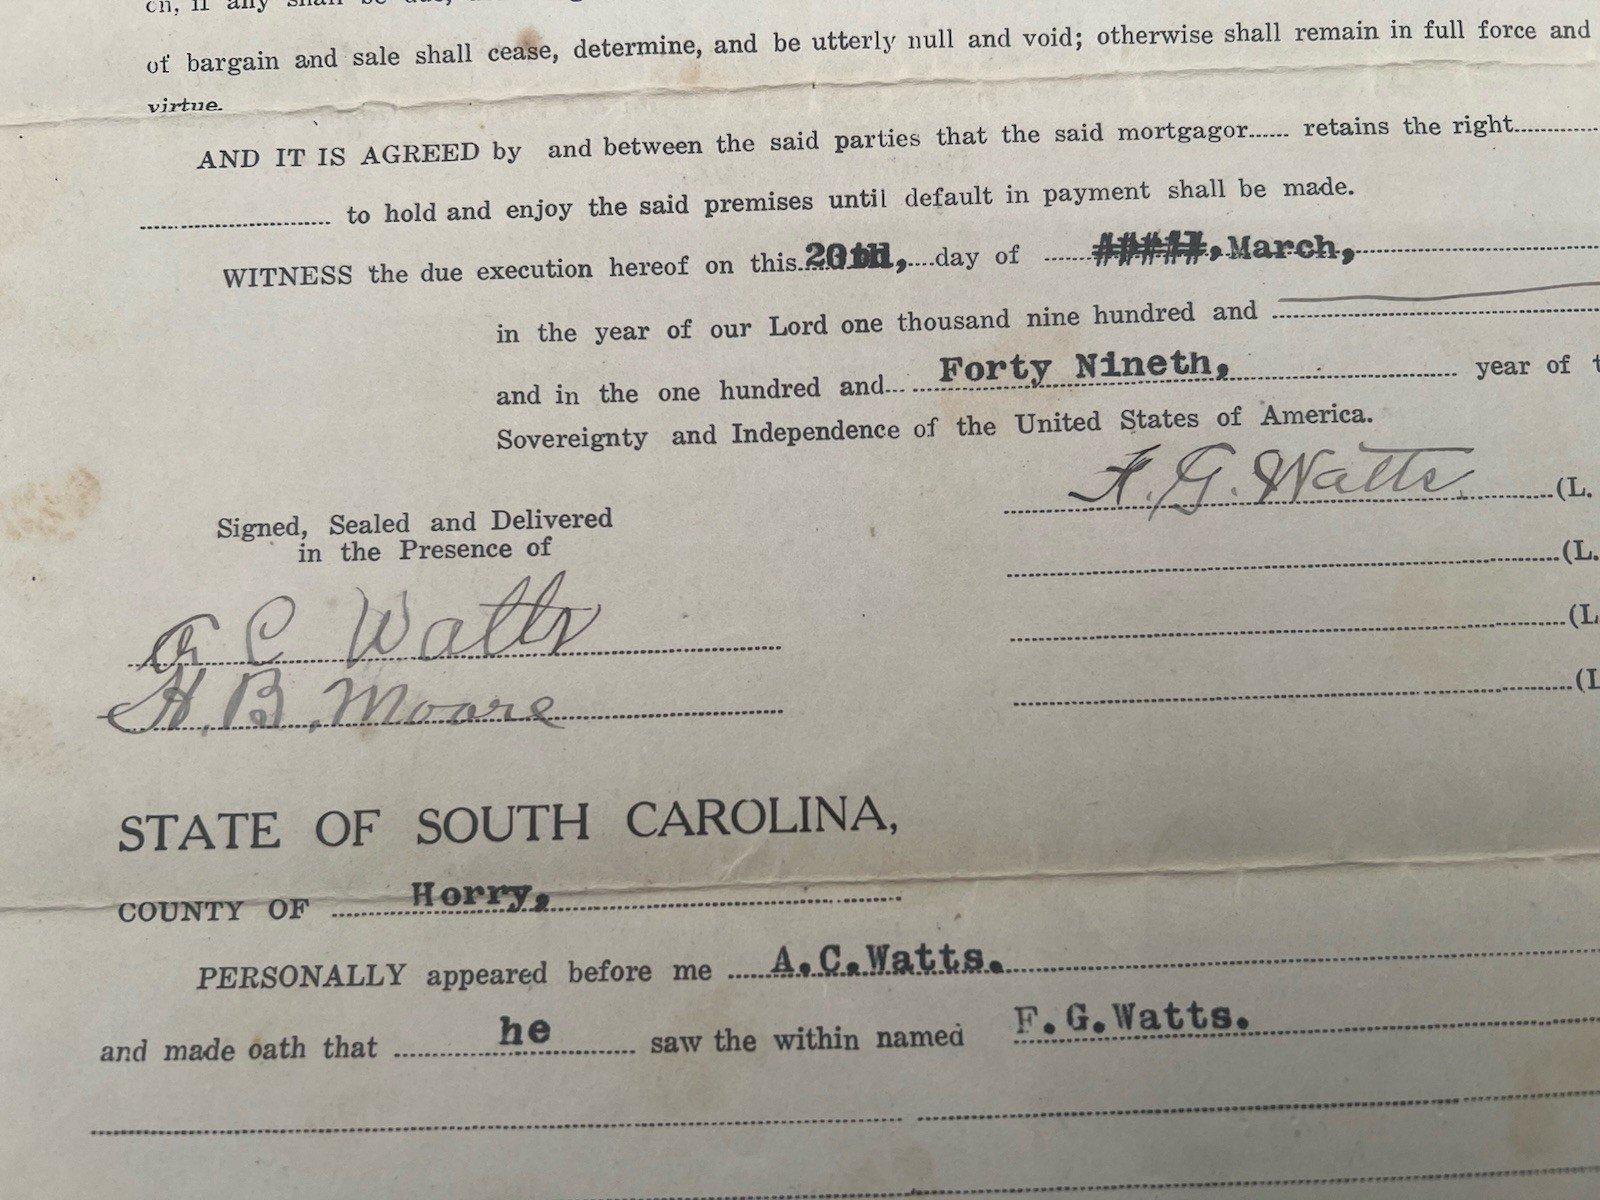 on, if any shall be due,
of bargain and sale shall cease, determine, and be utterly null and void; otherwise shall remain in full force and
virtue.
AND IT IS AGREED by and between the said parties that the said mortgagor...... retains the right............
.................... to hold and enjoy the said premises until default in payment shall be made.
WITNESS the due execution hereof on this 20th, day of #####, March,
in the year of our Lord one thousand nine hundred and
and in the one hundred and Forty Nineth, year of
Sovereignty and Independence of the United States of America.
F. G. Watts (L.
Signed, Sealed and Delivered
in the Presence of
(L.
A C Watts
(L
H. B. Moore
(L
STATE OF SOUTH CAROLINA,
COUNTY OF Horry,
PERSONALLY appeared before me A.C.Watts.
and made oath that he saw the within named F.G.Watts.